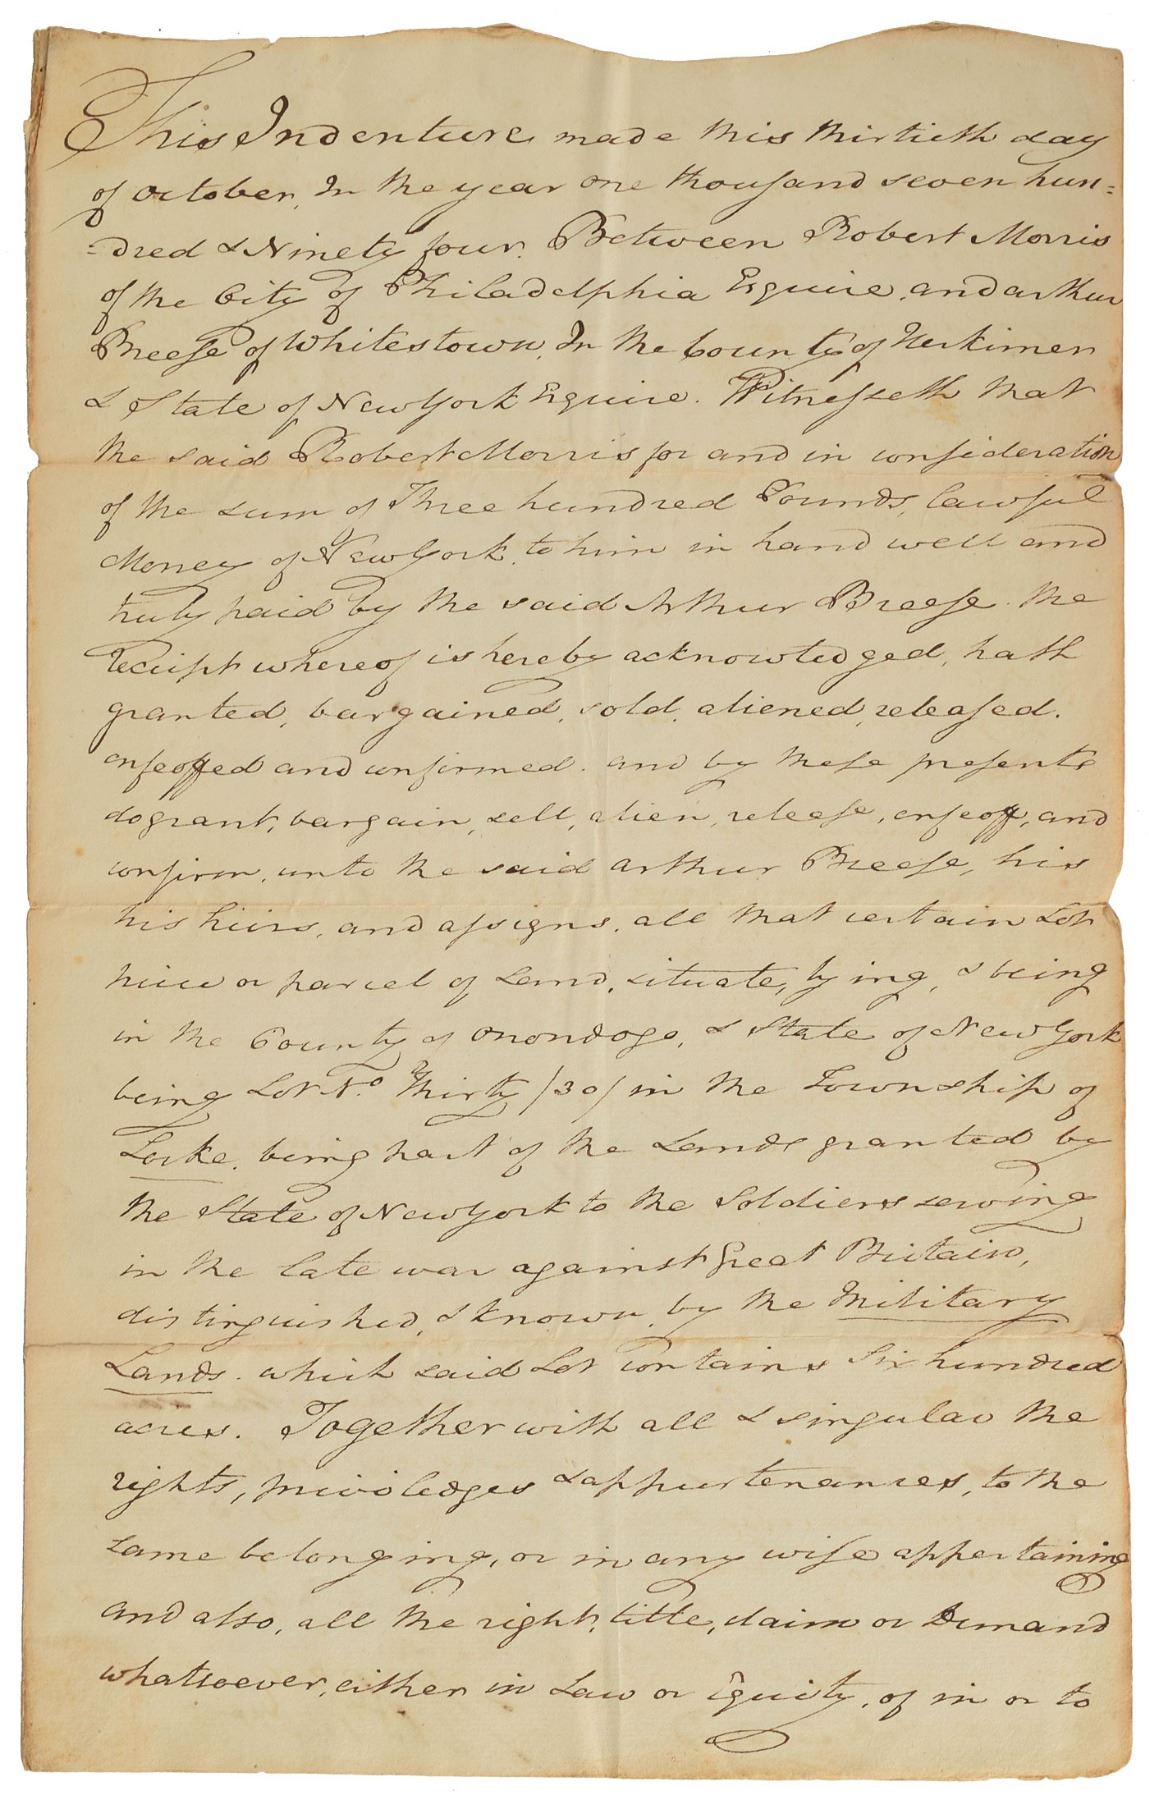 This Indenture made this thirtieth day
of October, In the year one thousand seven hun=
=dred & Ninety four. Between Robert Morris
of the City of Philadelphia Esquire, and arthur
Breese of Whitestown, In the County of Herkimer
& State of New York Esquire. Witnesseth that
the said Robert Morris for and in consideration
of the sum of Three hundred Pounds, lawful
Money of New York, to him in hand well and
truly paid by the said Arthur Breese. the
receipt whereof is hereby acknowledged, hath
granted, bargained, sold, aliened, released.
enfeoffed and confirmed. and by these presents
do grant, bargain, sell, alien, release, enfeoff, and
confirm, unto the said arthur Breese, his
his heirs, and assigns, all that certain Lot
piece or parcel of Land, situate, lying, & being
in the County of Onondogo, & State of New York
being Lot No. Thirty /30/ in the Township of
Locke. being part of the Lands granted by
the State of New York to the Soldiers serving
in the late war against Great Britain,
distinguished, & known, by the Military
Lands. which said Lot contains Six hundred
acres. Together with all & singular the
rights, priviledges & appurtenances, to the
same belonging, or in any wise appertaining
and also, all the right, title, claim or Demand
whatsoever, either in Law or Equity, of in or to